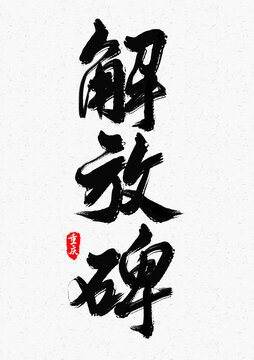 解放碑
重庆